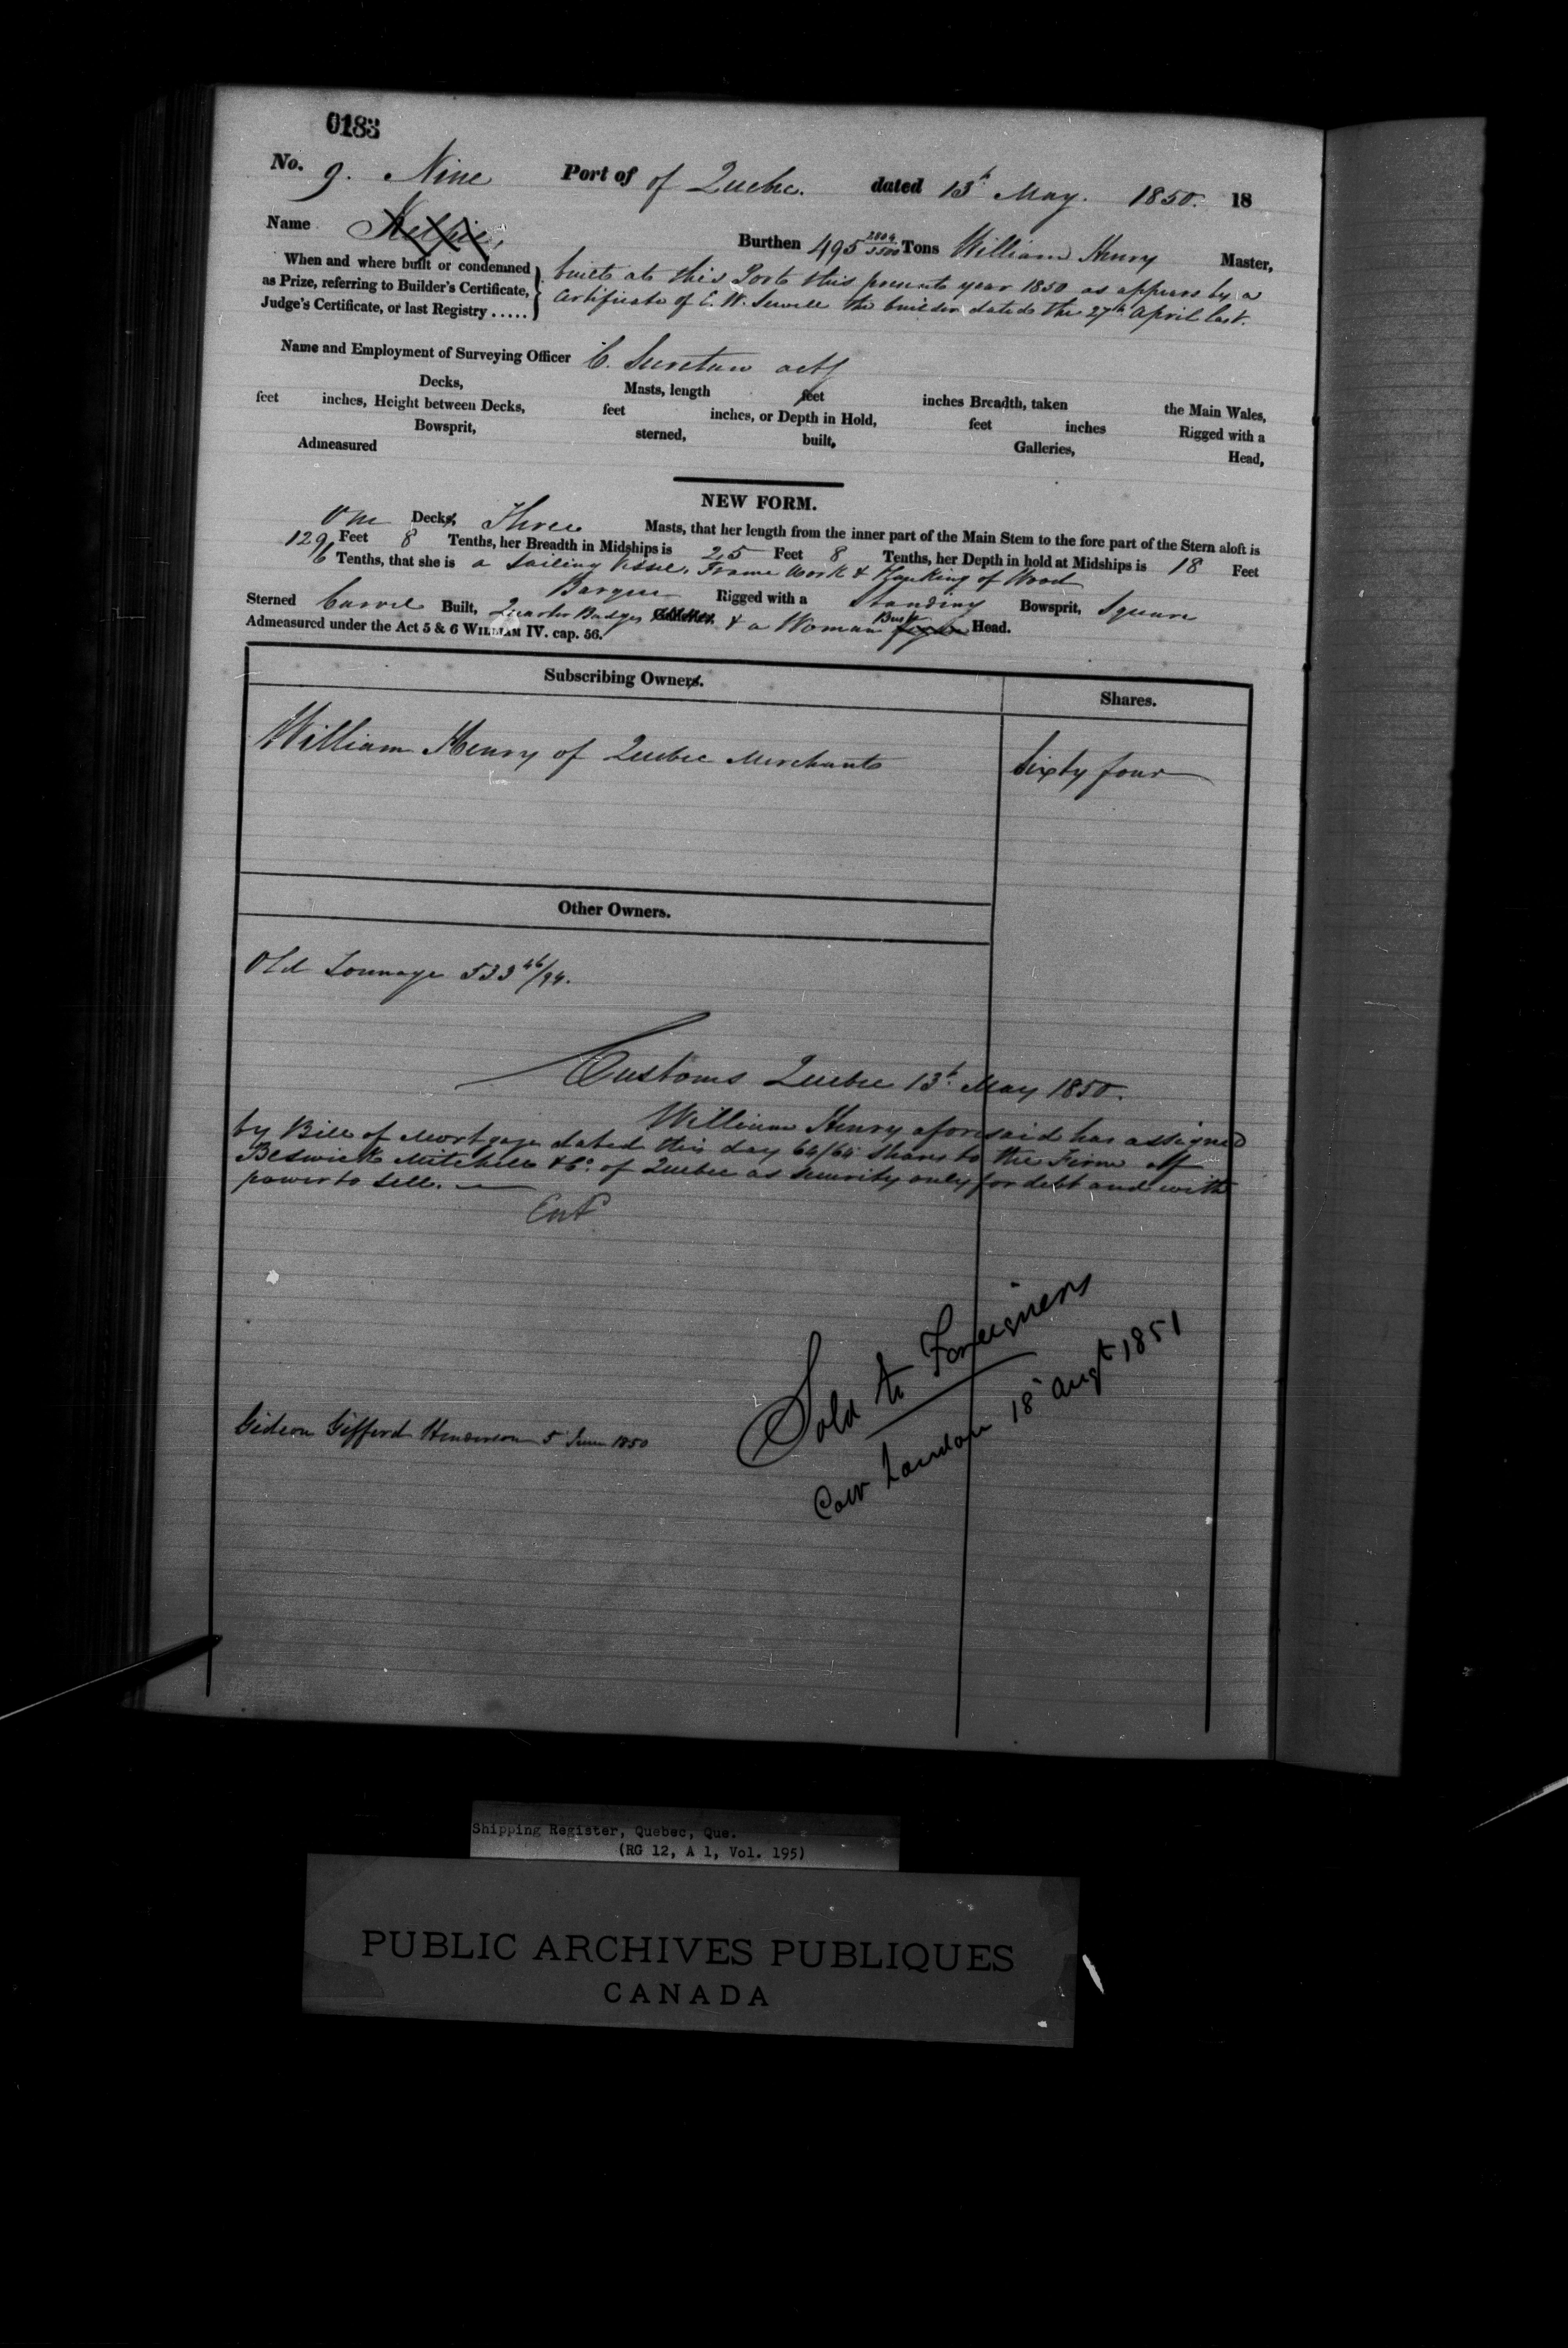 0183
No. 9. Nine Port of of Quebec. dated 13th May. 1850. 18
Name Kelpie, Burthen 495 2804/3500 Tons William Henry Master,
When and where built or condemned
as Prize, referring to Builder's Certificate,
Judge's Certificate, or last Registry .....
built at this Port this present year 1850 as appears by a
Certificate of E. W. Sewell the builder dated the 27th April last.
Name and Employment of Surveying Officer C. Secretan
Decks, Masts, length feet inches Breadth, taken the Main Wales,
feet inches, Height between Decks, feet inches, or Depth in Hold, feet inches Rigged with a
Bowsprit, sterned, built, Galleries, Head,
Admeasured
NEW FORM.
One Decks, Three Masts, that her length from the inner part of the Main Stem to the fore part of the Stern aloft is
129 Feet 8 Tenths, her Breadth in Midships is 25 Feet 8 Tenths, her Depth in hold at Midships is 18 Feet
6 Tenths, that she is a Sailing Vessel, Frame Work & Planking of Wood
Barque Rigged with a Standing Bowsprit, Square
Sterned Carvel Built, Quarter Badges Galleries, & a Woman Bust figure Head.
Admeasured under the Act 5 & 6 WILLIAM IV. cap. 56.
Subscribing Owners. Shares.
William Henry of Quebec Merchant Sixty four
Other Owners.
Old Tonnage 533 46/94.
Customs Quebec 13th May 1850.
William Henry aforesaid has assigned
by Bill of Mortgage dated this day 64/64 Shares to the Firm of
Beswick Mitchell & Co. of Quebec as security only for debt and with
power to sell.
Sold to Foreigners
Gideon Gifford Henderson 5 June 1850
London 18 Augt 1851
Shipping Register, Quebec, Que.
(RG 12, A 1, Vol. 195)
PUBLIC ARCHIVES PUBLIQUES
CANADA